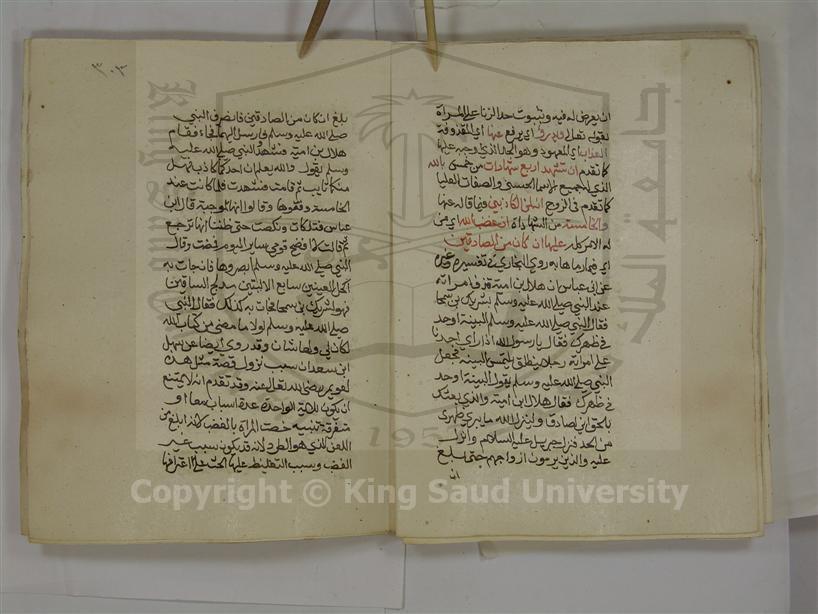 ان يعرض له فيه وثبوت حد الزنا على المرأة
بقوله تعالى ويدرؤ اي يرفع عنها اي المقذوفة
العذاب اي المعهود وهو الحد الذي وجب عليها
كما تقدم ان تشهد اربع شهادات من خمس بالله
الذي له جميع الاسماء الحسنى والصفات العليا
كما تقدم في الزوج انه لمن الكاذبين فيما قاله عنها
والخامسة من الشهادات ان غضب الله اي من
له الامر كله عليها ان كان من الصادقين
اي فيما رماها به روى البخاري في تفسيره وغيره
عن ابن عباس ان هلال بن امية قذف امراته
عند النبي صلى الله عليه وسلم بشريك بن سحما
فقال النبي صلى الله عليه وسلم البينة او حد
في ظهرك فقال يا رسول الله اذا راى احدنا
على امراته رجلا ينطلق يلتمس البينة فجعل
النبي صلى الله عليه وسلم يقول البينة او حد
في ظهرك فقال هلال ابن امية والذي بعثك
بالحق اني لصادق ولينزلن الله ما يبرئ ظهري
من الحد فنزل جبريل عليه السلام وانزل
عليه والذين يرمون ازواجهم حتى بلغ
ان
٣٠٣
بلغ ان كان من الصادقين فانصرف النبي
صلى الله عليه وسلم فارسل اليهما فجاء فقام
هلال بن امية فشهد والنبي صلى الله عليه
وسلم يقول والله يعلم ان احدكما كاذب فهل
منكما تايب ثم قامت فشهدت فلما كانت عند
الخامسة وقفوها وقالوا انها موجبة قال ابن
عباس فتلكات ونكصت حتى ظننا انها ترجع
ثم قالت لا افضح قومي ساير اليوم فمضت وقال
النبي صلى الله عليه وسلم ابصروها فان جات به
اكحل العينين سابغ الاليتين خدلج الساقين
فهو لشريك بن سحما فجات به كذلك فقال النبي
صلى الله عليه وسلم لولا ما مضى من كتاب الله
لكان لي ولها شان وقد روى ايضا عن سهل
ابن سعد ان سبب نزول قصة مثل هذه
لعويمر رضي الله تعالى عنه وقد تقدم انه لا يمتنع
ان يكون للاية الواحدة عدة اسباب معا او
متفرقة تنبيه خصت المراة بالغضب لانه ابلغ من
اللعن الذي هو الطرد لانه قد يكون سبب غير
الغضب وسبب التغليظ عليها الحث على اعترافها
جامعة الملك سعود
1957
Copyright © King Saud University